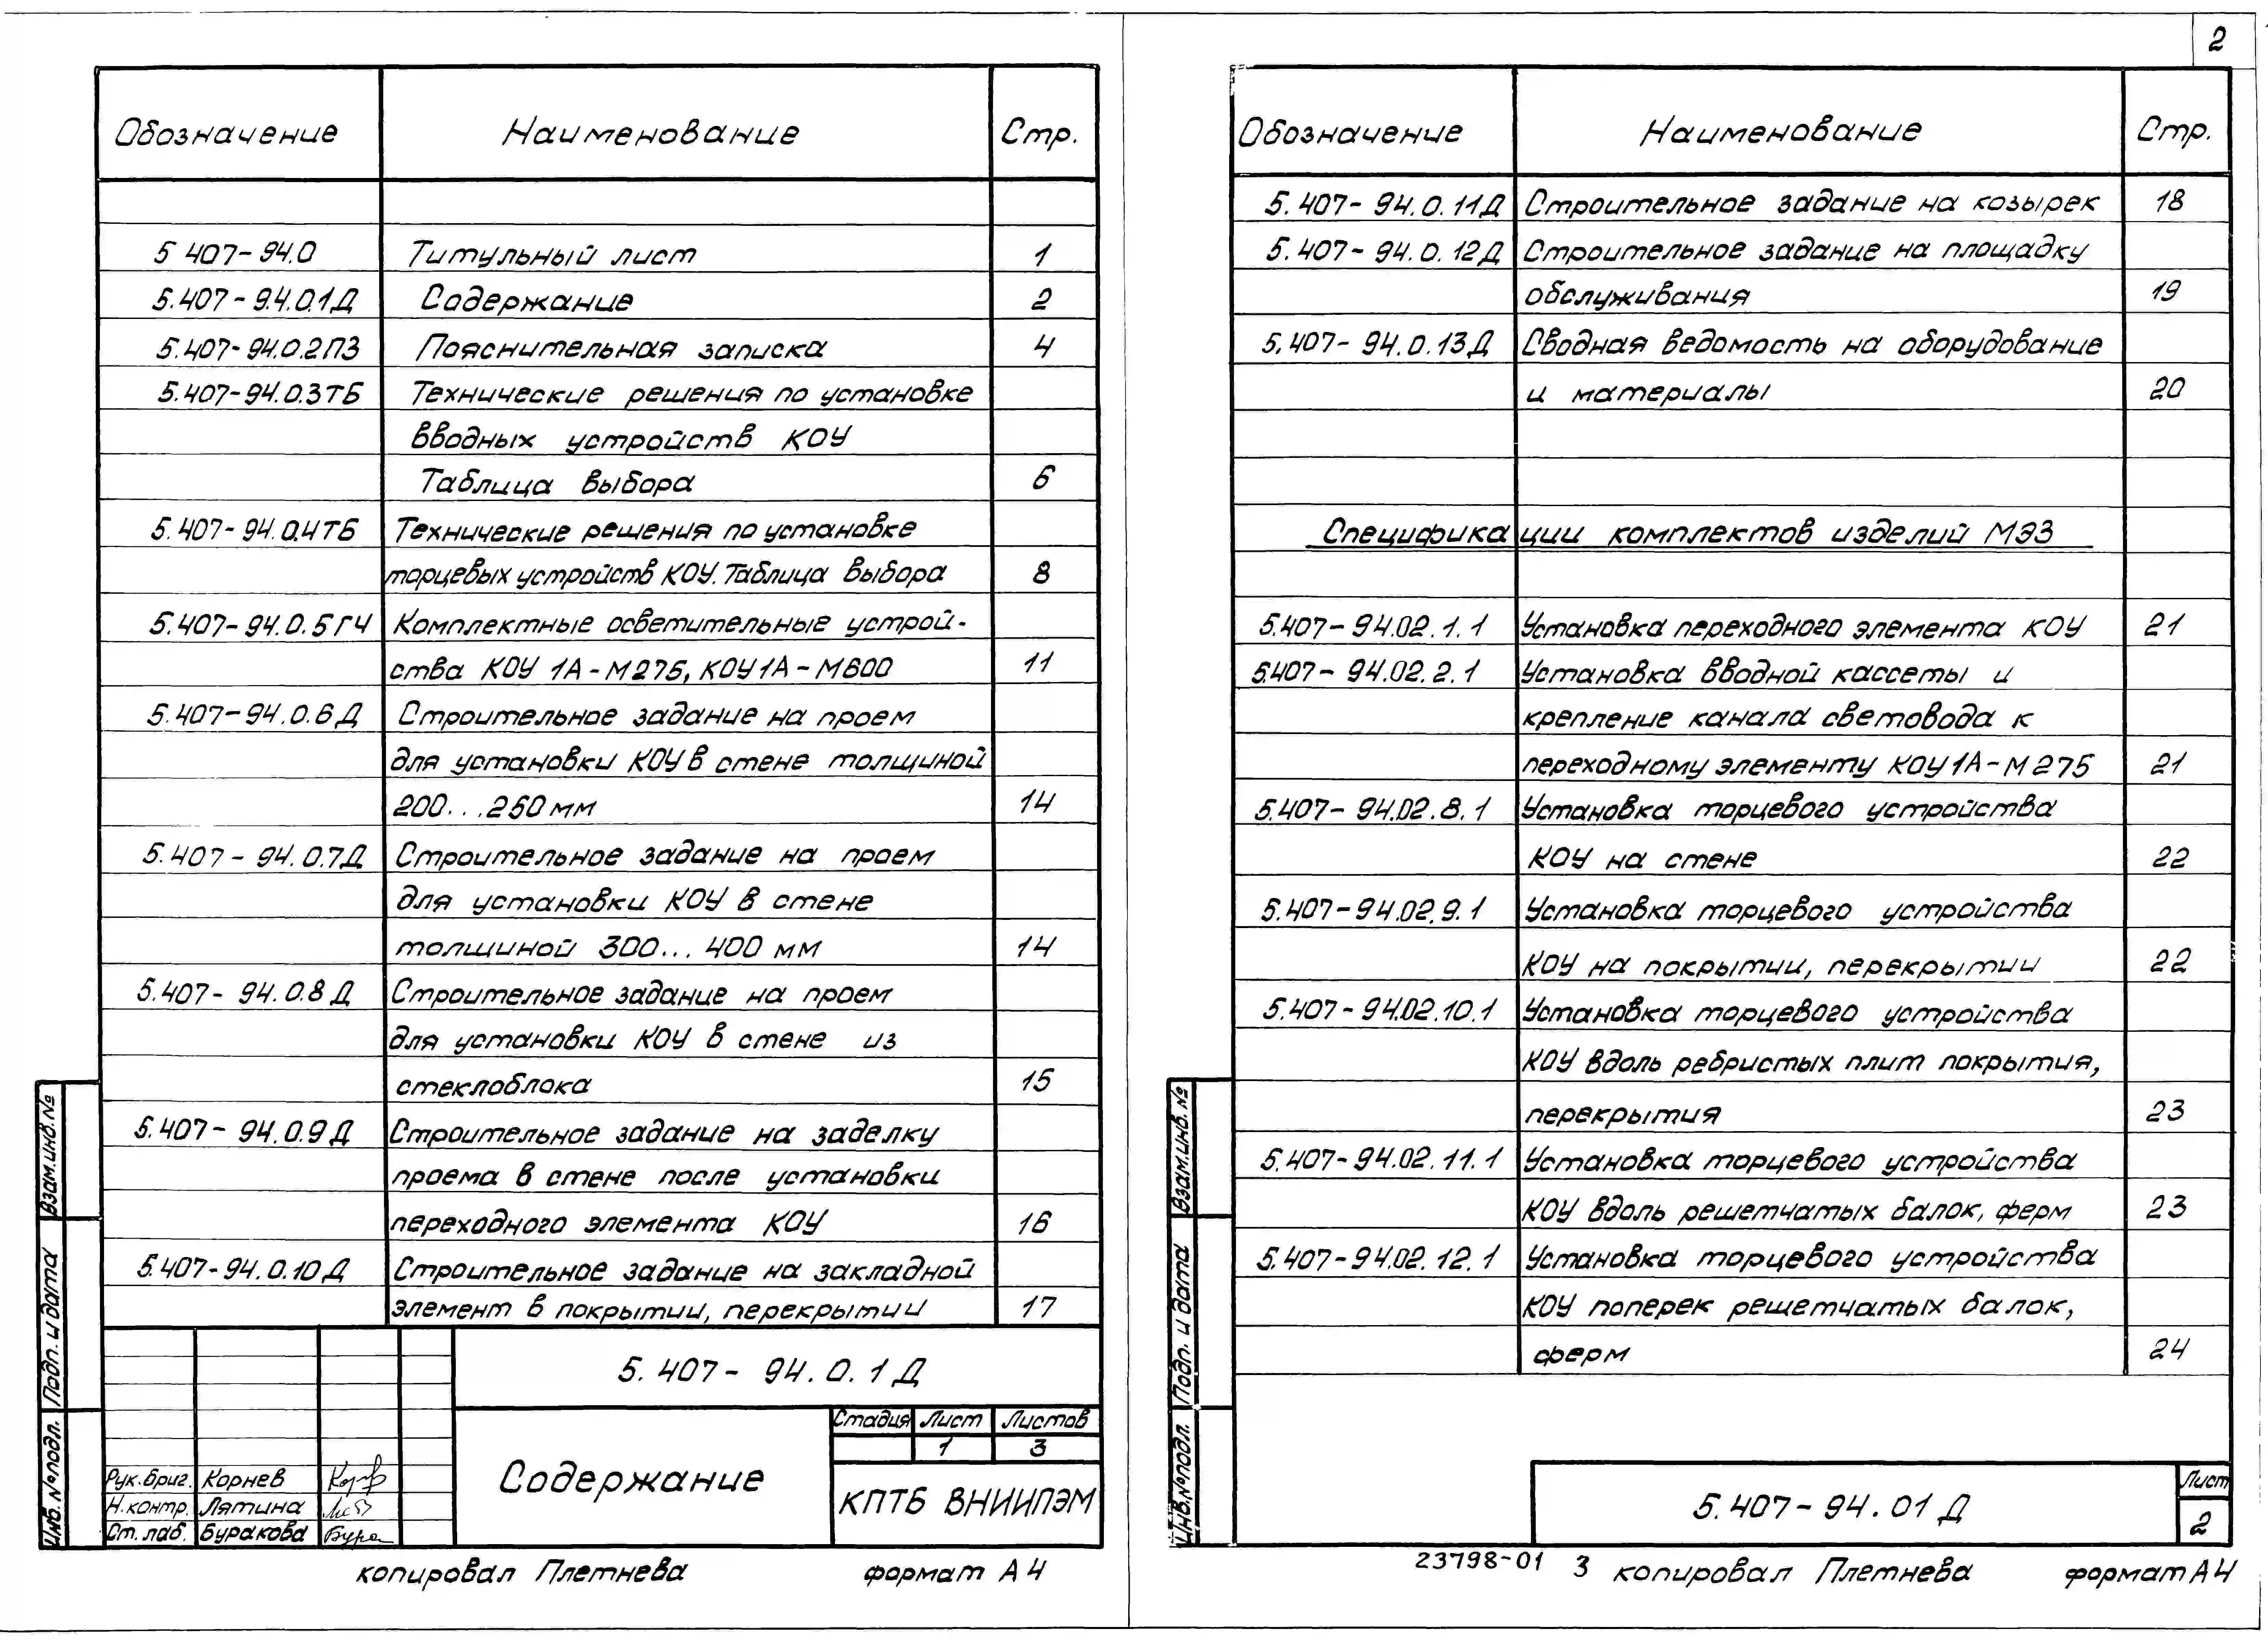 2
Обозначение Наименование Стр.
5 407-94.0 Титульный лист 1
5.407-94.0.1Д Содержание 2
5.407-94.0.2ПЗ Пояснительная записка 4
5.407-94.0.3ТБ Технические решения по установке
вводных устройств КОУ
Таблица выбора 6
5.407-94.0.4ТБ Технические решения по установке
торцевых устройств КОУ. Таблица выбора 8
5.407-94.0.5ГЧ Комплектные осветительные устрой-
ства КОУ 1А-М275, КОУ1А-М600 11
5.407-94.0.6Д Строительное задание на проем
для установки КОУ в стене толщиной
200...250мм 14
5.407-94.0.7Д Строительное задание на проем
для установки КОУ в стене
толщиной 300...400 мм 14
5.407-94.0.8Д Строительное задание на проем
для установки КОУ в стене из
стеклоблока 15
5.407-94.0.9Д Строительное задание на заделку
проема в стене после установки
переходного элемента КОУ 16
5.407-94.0.10Д Строительное задание на закладной
элемент в покрытии, перекрытии 17
5.407-94.0.1Д
Содержание
Стадия Лист Листов
1 3
КПТБ ВНИИПЭМ
Рук.бриг. Корнев
Н.контр. Лятина
Ст.лаб. Буракова
Взам.инв.№
Подп. и дата
Инв.№подл.
копировал Плетнева формат А4
Обозначение Наименование Стр.
5.407-94.0.11Д Строительное задание на козырек 18
5.407-94.0.12Д Строительное задание на площадку
обслуживания 19
5.407-94.0.13Д Сводная ведомость на оборудование
и материалы 20
Спецификации комплектов изделий МЭЗ
5.407-94.02.1.1 Установка переходного элемента КОУ 21
5.407-94.02.2.1 Установка вводной кассеты и
крепление канала световода к
переходному элементу КОУ1А-М275 21
5.407-94.02.8.1 Установка торцевого устройства
КОУ на стене 22
5.407-94.02.9.1 Установка торцевого устройства
КОУ на покрытии, перекрытии 22
5.407-94.02.10.1 Установка торцевого устройства
КОУ вдоль ребристых плит покрытия,
перекрытия 23
5.407-94.02.11.1 Установка торцевого устройства
КОУ вдоль решетчатых балок, ферм 23
5.407-94.02.12.1 Установка торцевого устройства
КОУ поперек решетчатых балок,
ферм 24
5.407-94.01Д
Лист
2
Взам.инв.№
Подп. и дата
Инв.№подл.
23798-01 3 копировал Плетнева формат А4